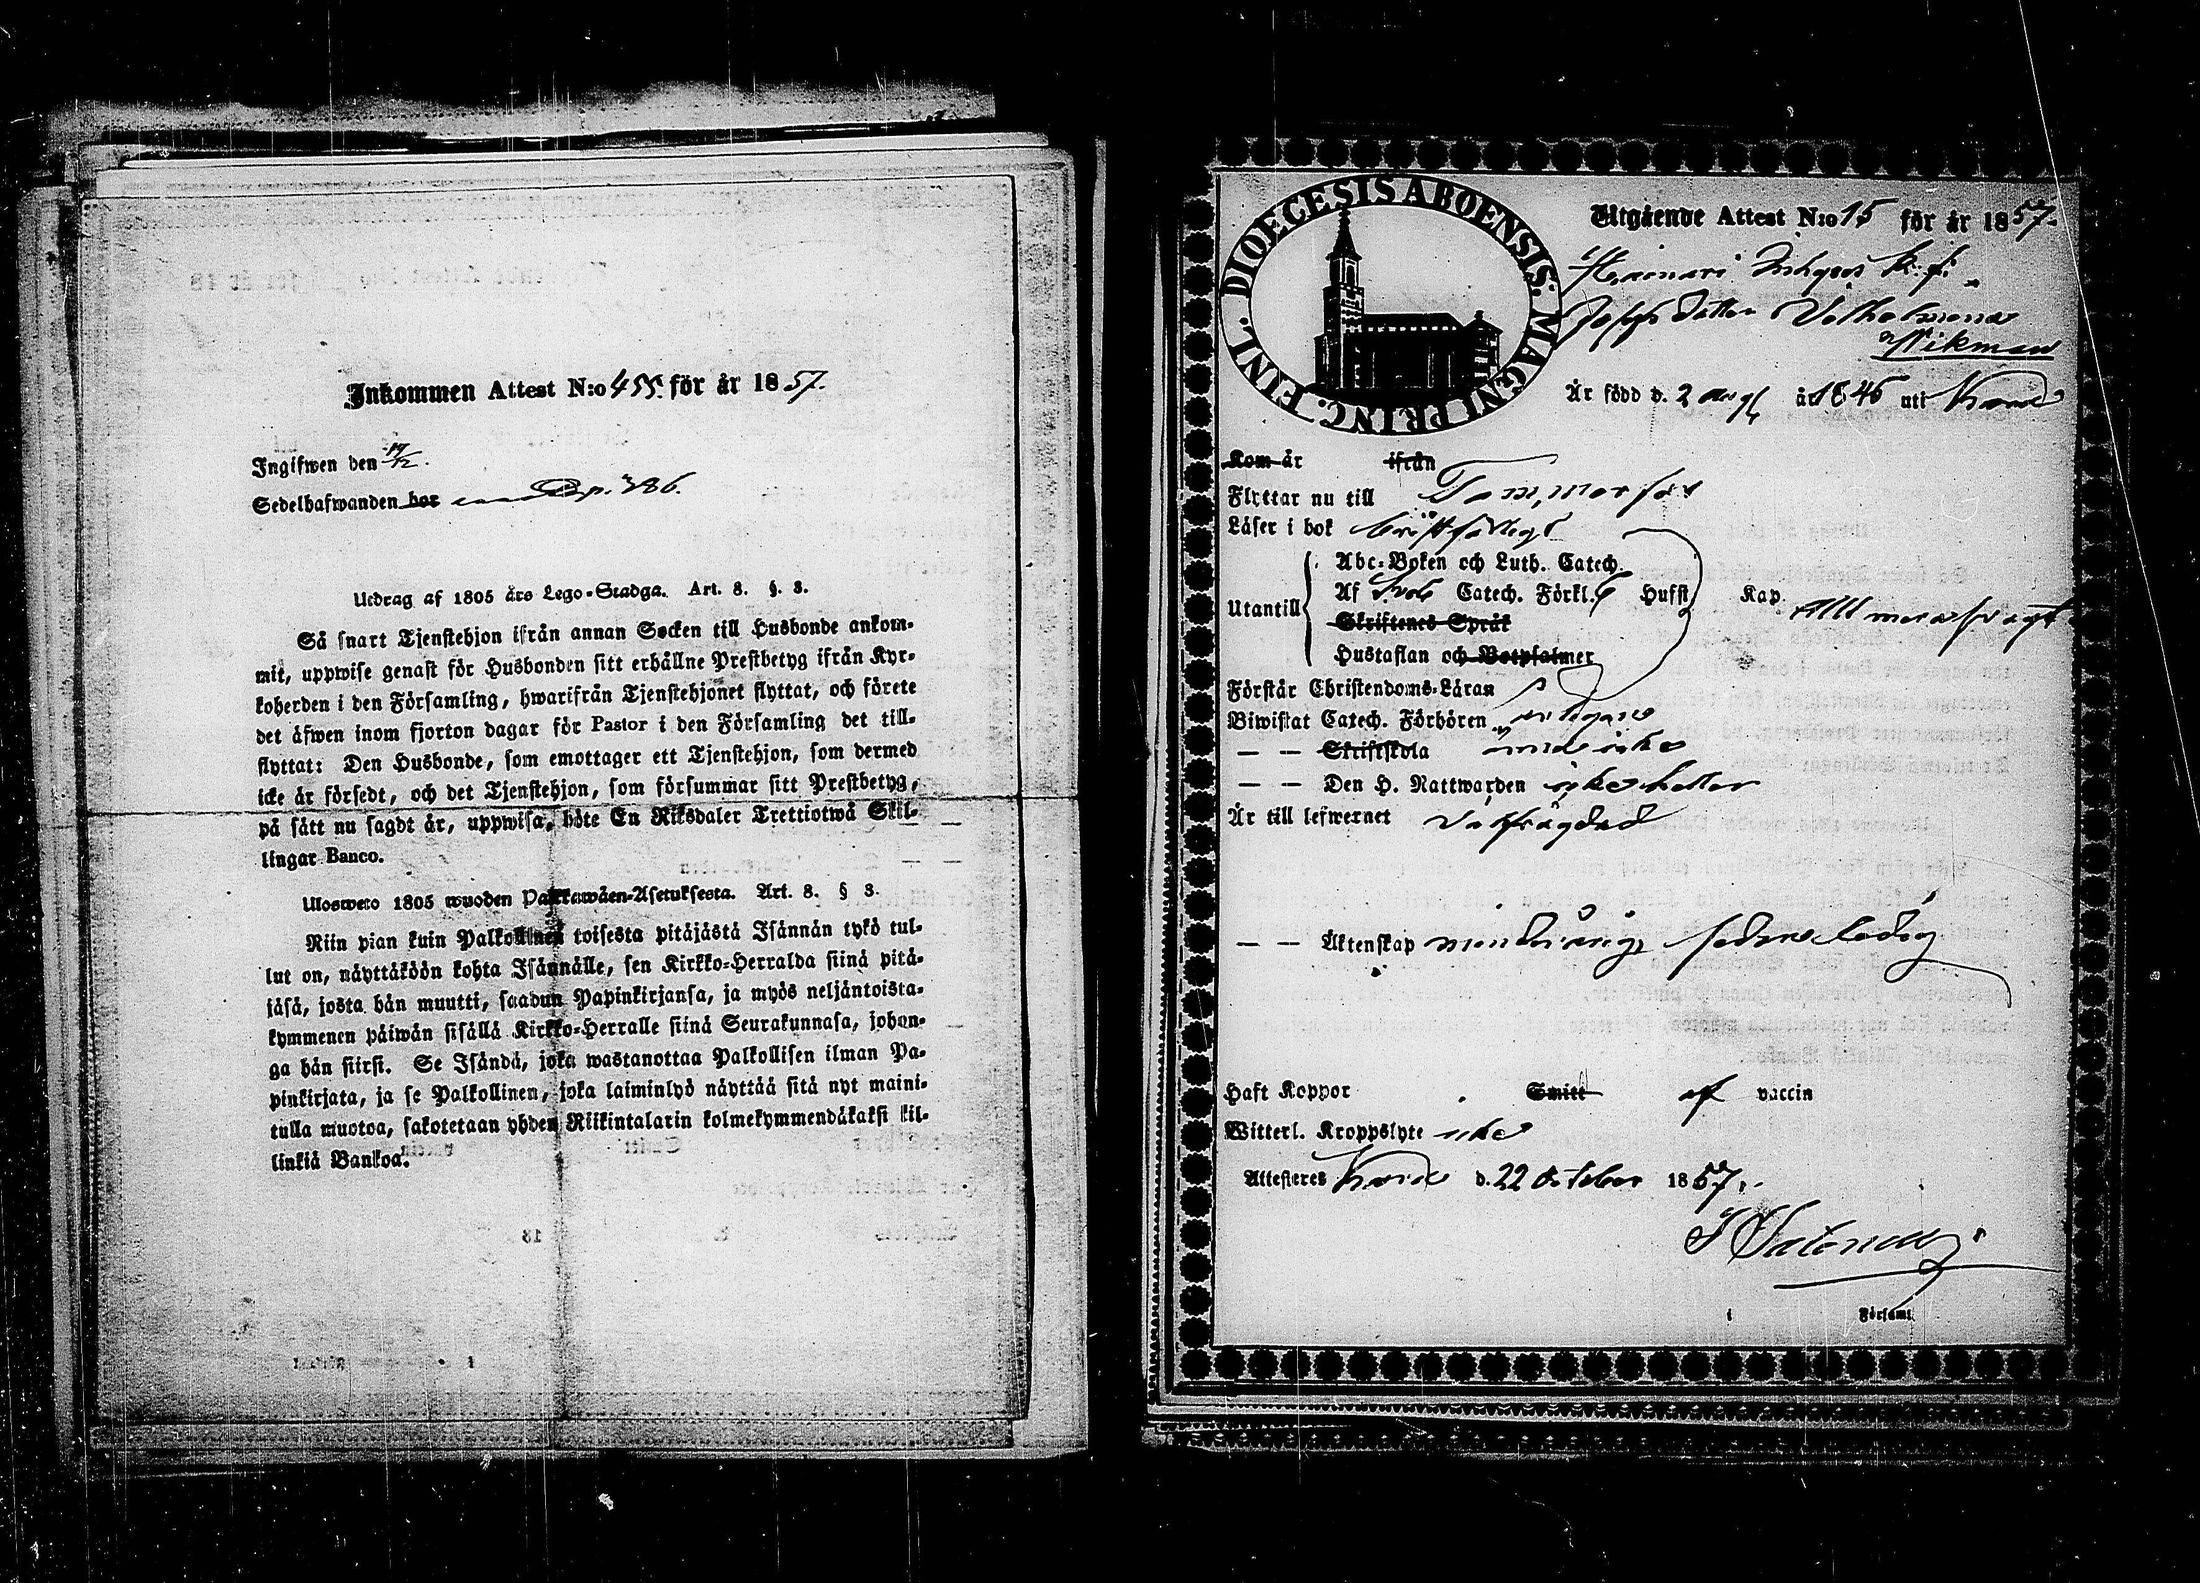 Inkommen Attest N:o 455. för år 1857.
Ingifwen den 17/12.
Sedelhafwanden bor p. 786.
Utdrag af 1805 års Lego-Stadga. Art. 8. §. 3.
Så snart Tjenstehjon ifrån annan Socken till Husbonde ankom-
mit, uppwise genast för Husbonden sitt erhållne Prestbetyg ifrån Kyr-
koherden i den Församling, hwarifrån Tjenstehjonet flyttat, och förete
det äfwen inom fjorton dagar för Pastor i den Församling det till-
flyttat: Den Husbonde, som emottager ett Tjenstehjon, som dermed
icke är försedt, och det Tjenstehjon, som försummar sitt Prestbetyg,
på sätt nu sagdt är, uppwisa, böte En Riksdaler Trettiotwå Skil-
lingar Banco.
Ulosweto 1805 wuoden Palkkawäen-Asetuksesta. Art. 8. § 3.
Niin pian kuin Palkollinen toisesta pitäjästä Isännän tykö tul-
lut on, näyttäköön kohta Isännälle, sen Kirkko-Herralda siinä pitä-
jäsä, josta hän muutti, saadun Papinkirjansa, ja myös neljäntoista-
kymmenen päiwän sisällä Kirkko-Herralle siinä Seurakunnasa, johon-
ga hän siirsi. Se Isändä, joka wastanottaa Palkollisen ilman Pa-
pinkirjata, ja se Palkollinen, joka laiminlyö näyttää sitä nyt maini-
tulla muotoa, sakotetaan yhden Riikintalarin kolmekymmendäkaksi kil-
linkiä Bankoa.
DIOECESIS ABOENSIS. MAGNI PRINC. FINL.
Utgående Attest N:o 15 för år 1857.
Inhyses
Josephs Dotter Vilhelmina
Wikman
Är född d. 2 Aug. år 1846 uti
Kom år ifrån
Flyttar nu till Tammerfors
Läser i bok förswarligt
Abc-Boken och Luth. Catech.
Utantill Af Sveb. Catech. Förkl. 6 Hufst. Kap.
Skriftenes Språk
Hustaflan och Botpsalmer
Förstår Christendoms-Läran
Biwistat Catech. Förhören
— — Skriftskola ännu icke
— — Den H. Nattwarden icke heller
Är till lefwernet välfrägdad
— — Äktenskap minderårig ledig
Haft Koppor Smitt af vaccin
Witterl. Kroppslyte icke
Attesteres d. 22 October 1857.
i Församl.